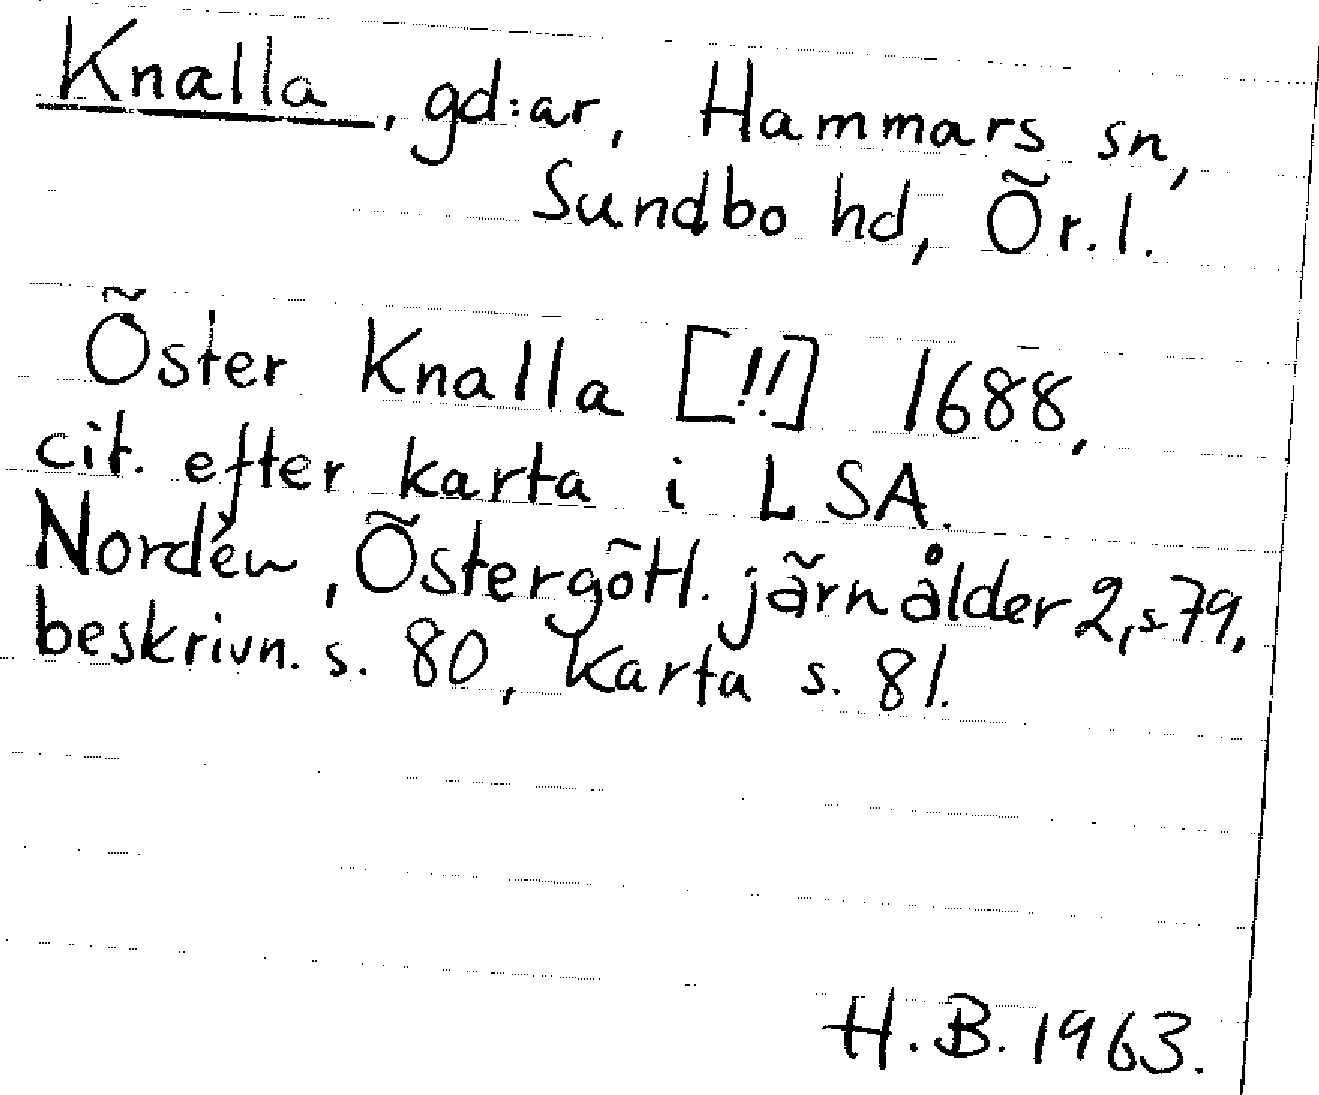 Knalla, gd:ar, Hammars sn,
Sundbo hd, Ör. l.
Öster Knalla [!!] 1688,
cit. efter karta i LSA.
Nordén, Östergötl. järnålder 2, s. 79,
beskrivn. s. 80, karta s. 81.
H. B. 1963.